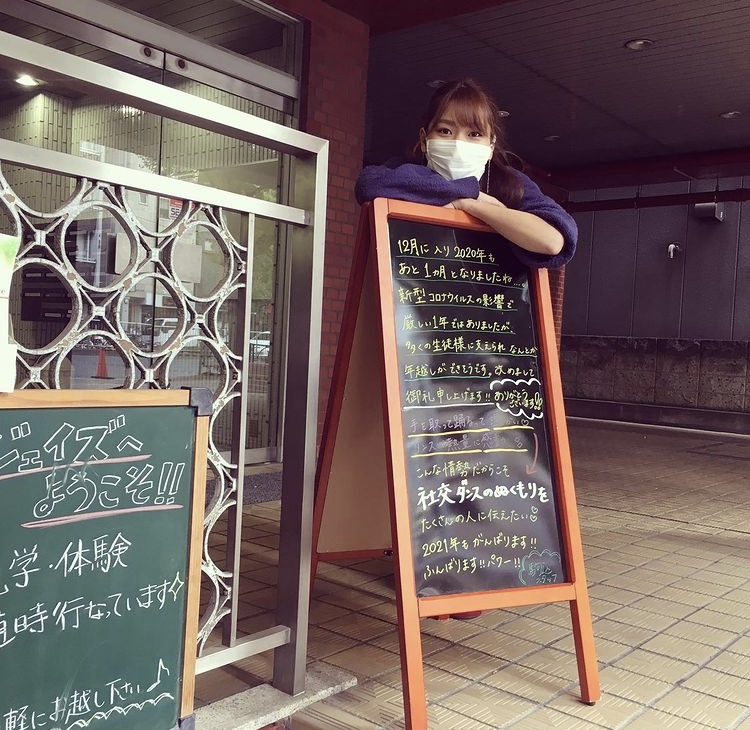 ジェイズへ
ようこそ!!
学・体験
随時行なっています
軽にお越し下さい♪
12月に入り2020年も
あと1ヵ月となりましたね…。
新型コロナウイルスの影響で
厳しい1年ではありましたが、
多くの生徒様に支えられ なんとか
年越しができそうです。改めまして
御礼申し上げます!! ありがとうございます!!
手を取って踊るなって
ダンスの熱量に
こんな情勢だからこそ
社交ダンスのぬくもりを
たくさんの人に伝えたい♡
2021年もがんばります!!
ふんばります!!パワー!!
スタッフ